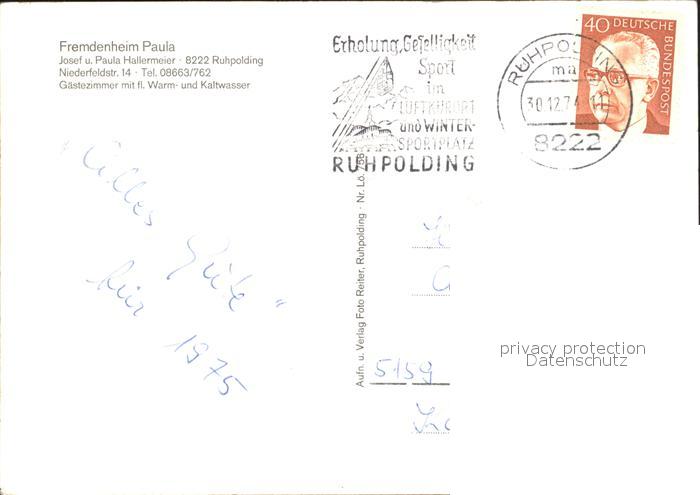 Fremdenheim Paula
Josef u. Paula Hallermeier · 8222 Ruhpolding
Niederfeldstr. 14 · Tel. 08663/762
Gästezimmer mit fl. Warm- und Kaltwasser
Erholung, Geselligkeit
Sport
im
LUFTKURORT
und WINTER-
SPORTPLATZ
RUHPOLDING
RUHPOLDING
ma
30.12.74
8222
40 DEUTSCHE BUNDESPOST
"Alles
Gute"
für 1975
Aufn. u. Verlag Foto Reiter, Ruhpolding · Nr. Lö.
5159
privacy protection
Datenschutz